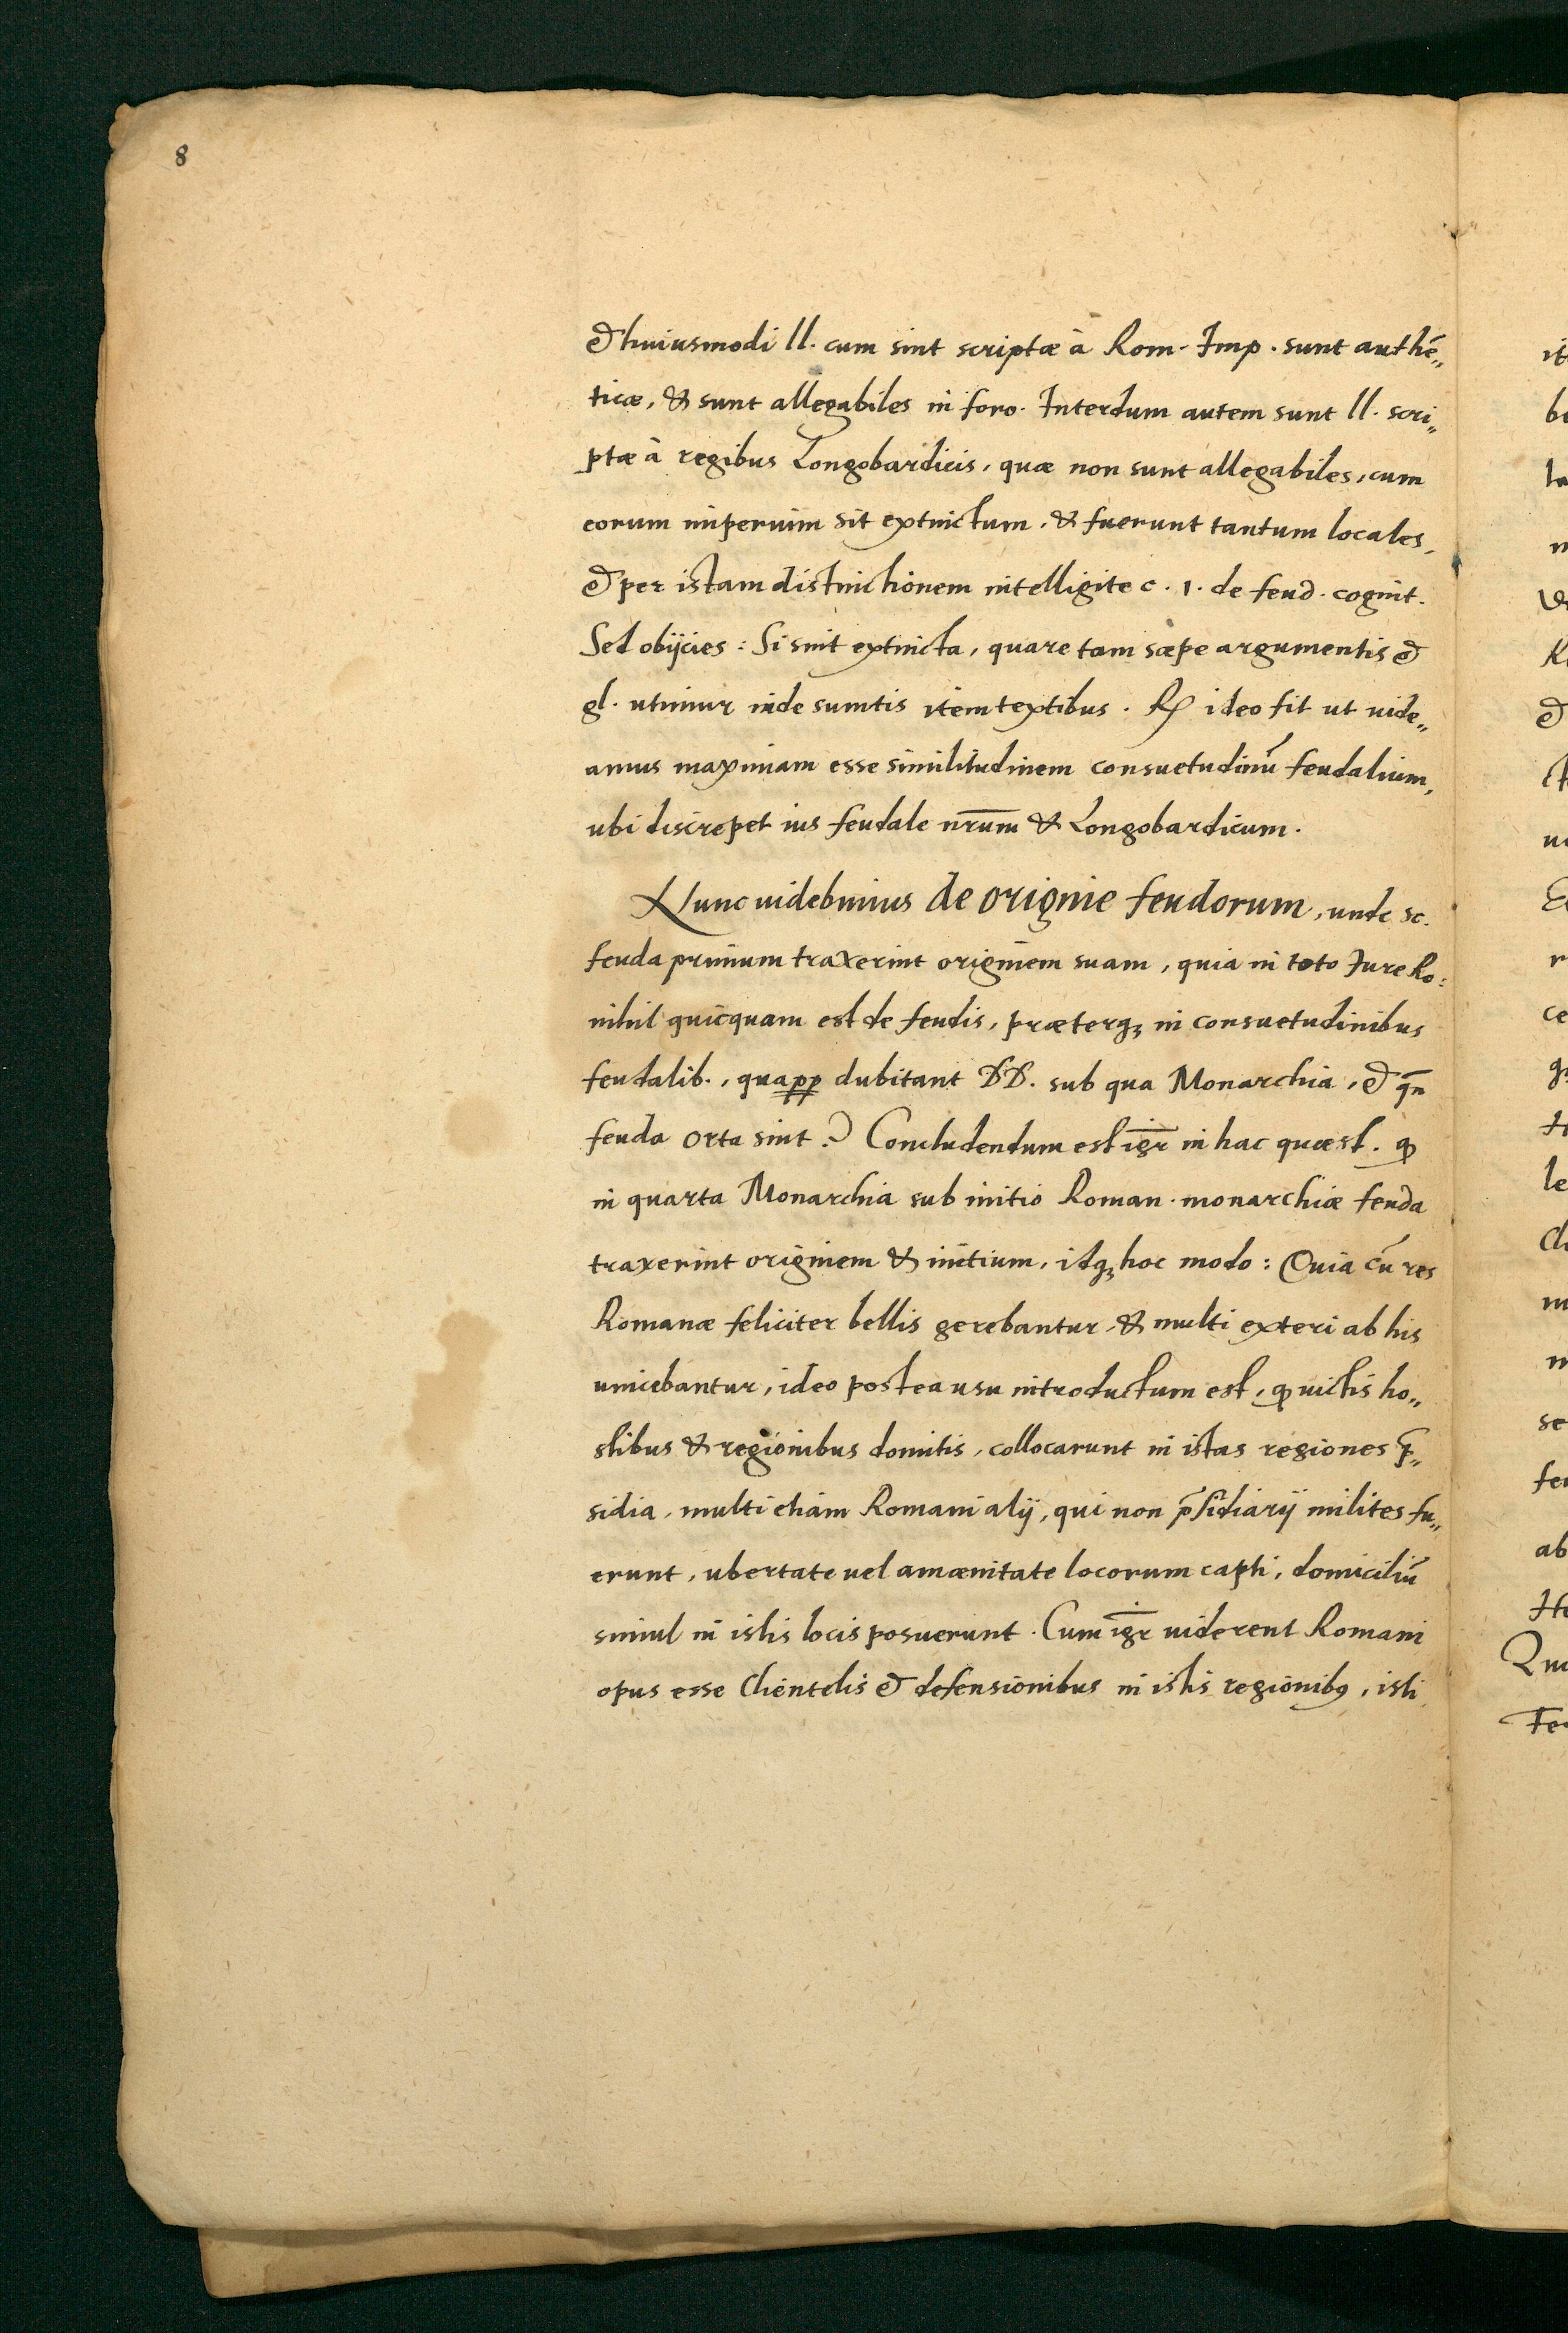 8
& huiusmodi ll. cum sint scriptæ à Rom. Imp. sunt authē„
ticæ, & sunt allegabiles in foro. Interdum autem sunt ll. scri„
ptæ à regibus Longobardicis, quæ non sunt allegabiles, cum
eorum imperium sit extinctum, & fuerunt tantum locales,
& per istam distinctionem intelligite c. 1. de feud. cognit.
Sed obijcies: Si sint extincta, quare tam sæpe argumentis &
gl. utimur inde sumtis item textibus. R ideo fit ut uide„
amus maximam esse similitudinem consuetudinū feudalium,
ubi discrepet ius feudale nr̄um & Longobardicum.
Nunc uidebimus de origine feudorum, unde sc.
feuda primum traxerint originem suam, quia in toto Jure Ro:
nihil quicquam est de feudis, præterqꝫ in consuetudinibus
feudalib., quapp dubitant DD. sub qua Monarchia, & qn̄
feuda orta sint? Concludendum est igr̄ in hac quæst. ꝙ
in quarta Monarchia sub initio Roman. monarchiæ feuda
traxerint originem & initium, idqꝫ hoc modo: Quia cū res
Romanæ feliciter bellis gerebantur, & multi exteri ab his
uincebantur, ideo postea usu introductum est, ꝙ uictis ho„
stibus & regionibus domitis, collocarunt in istas regiones p̄„
sidia, multi etiam Romani alij, qui non p̄sidiarij milites fu„
erunt, ubertate uel amænitate locorum capti, domiciliū
simul in istis locis posuerunt. Cum igr̄ uiderent Romani
opus esse Clientelis & defensionibus in istis regionibꝰ, isti